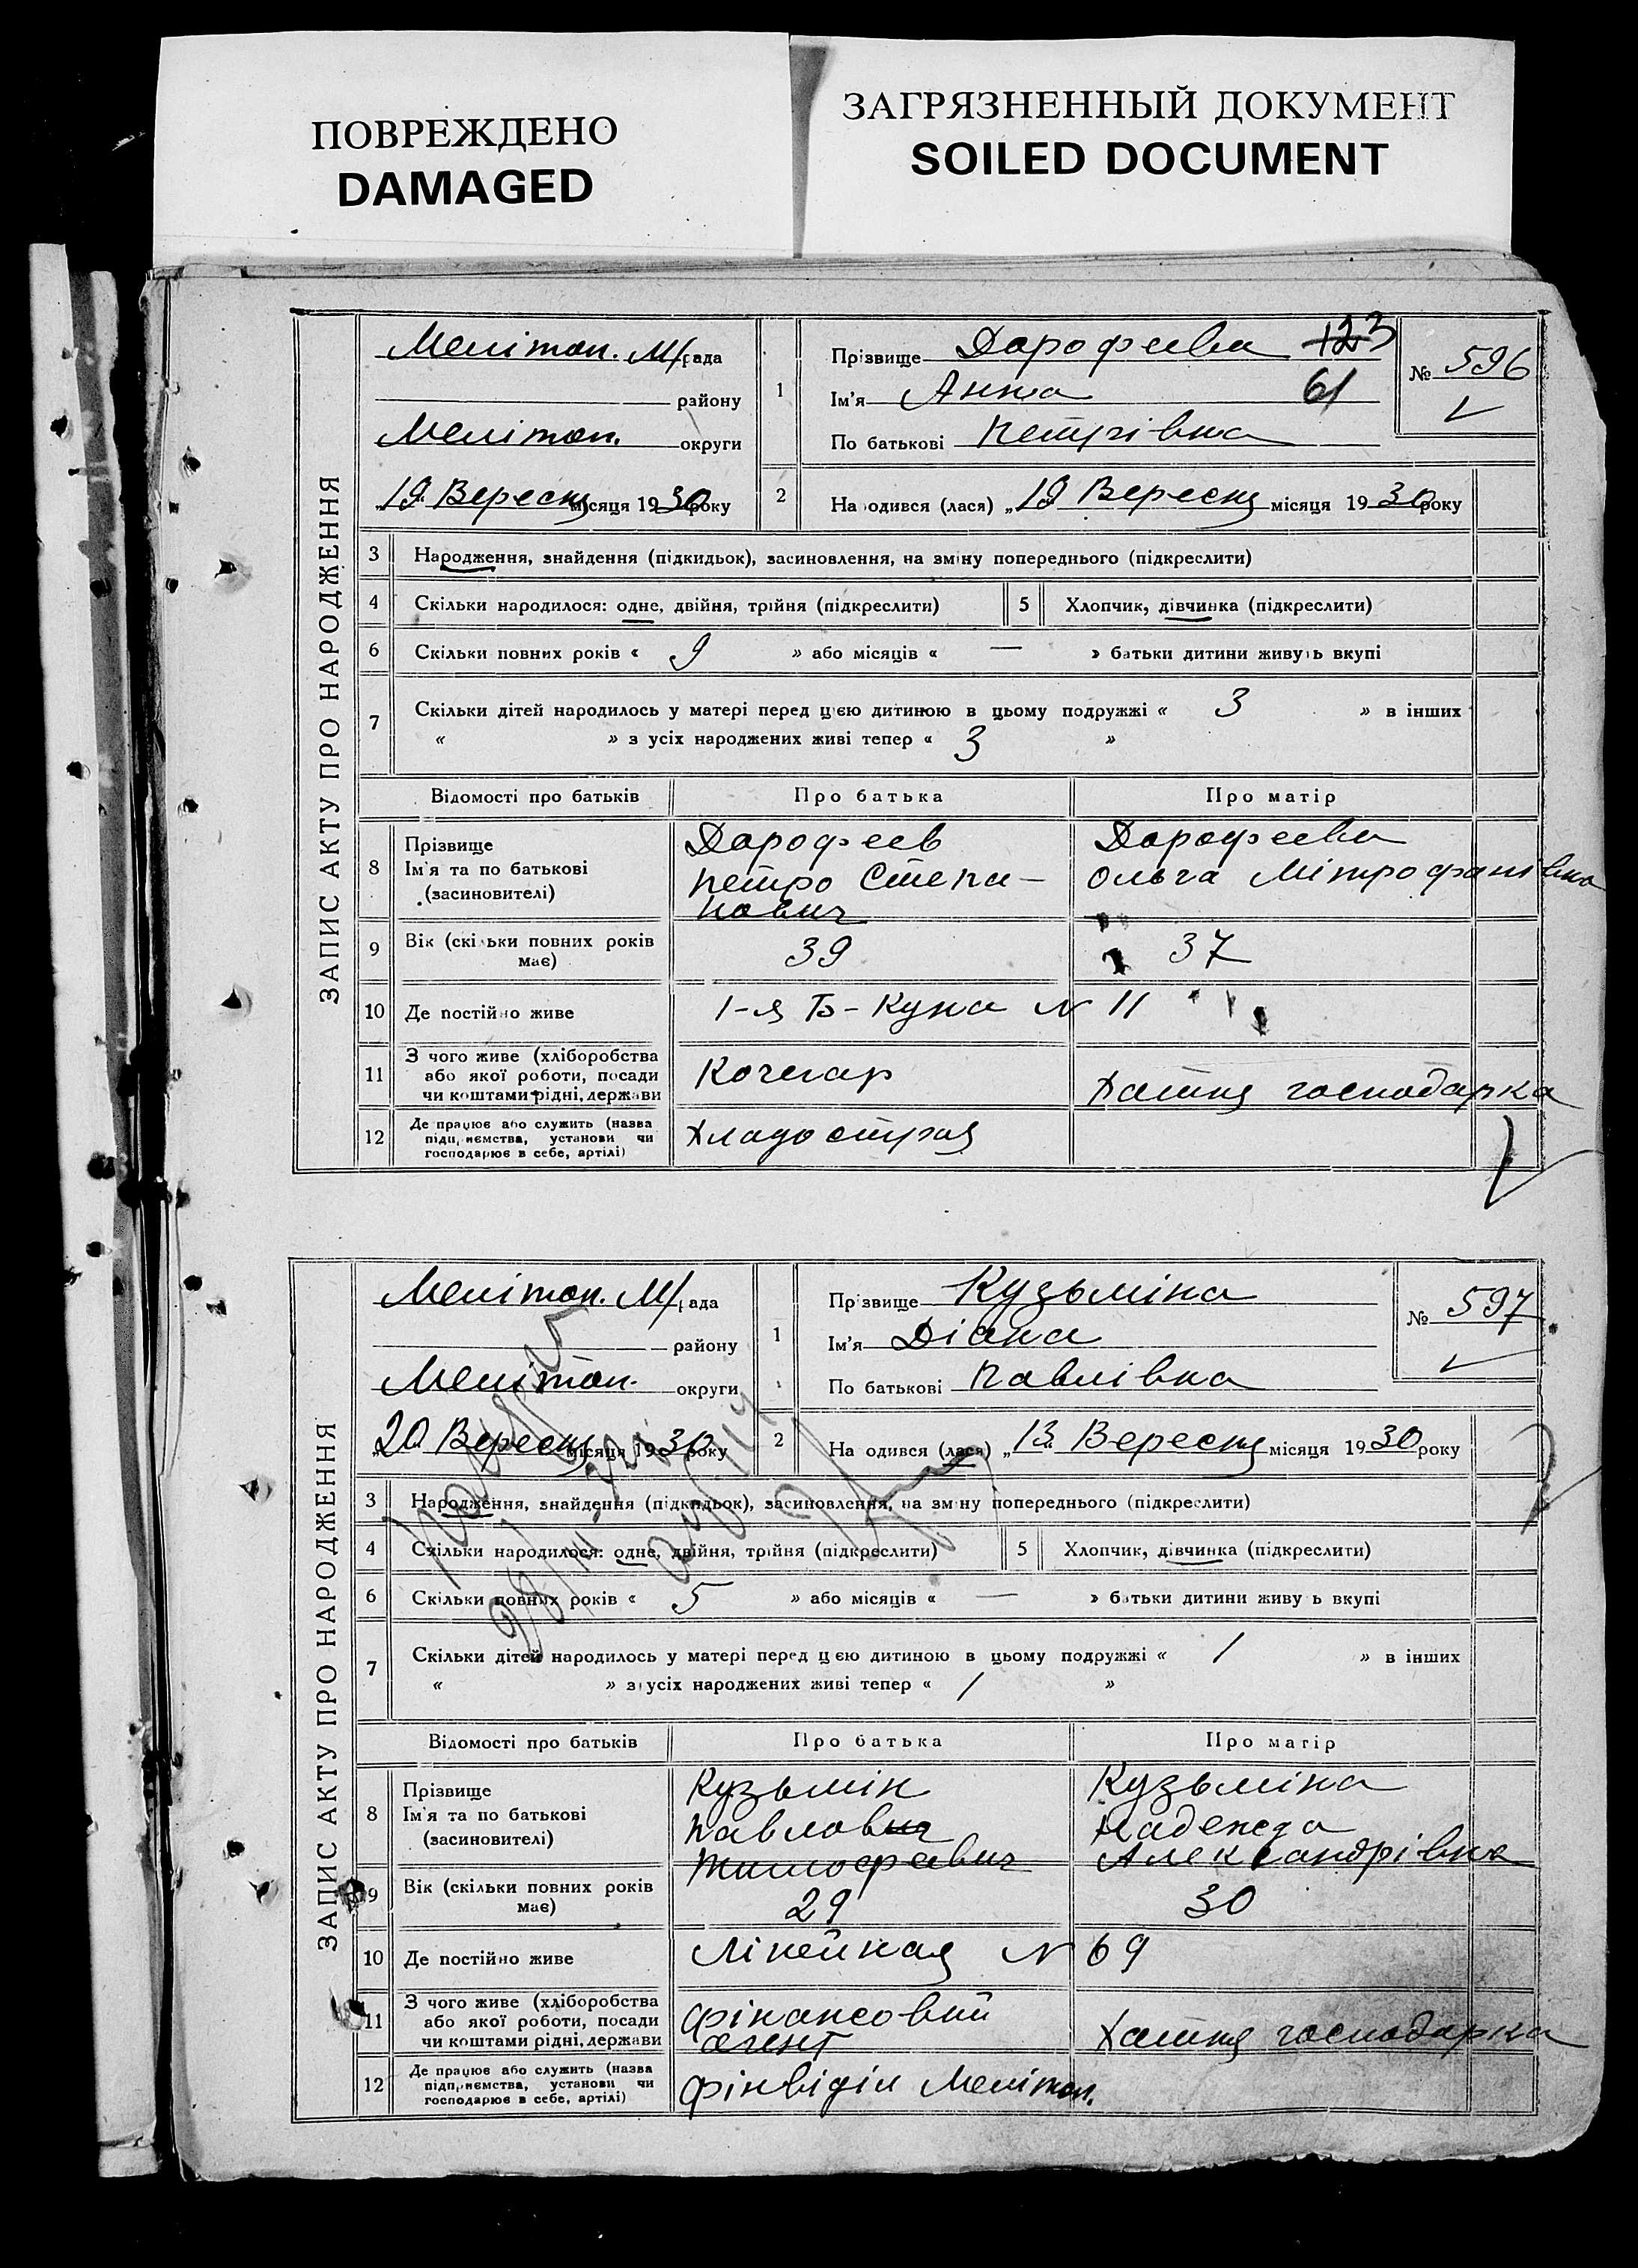 ПОВРЕЖДЕНО
DAMAGED
ЗАГРЯЗНЕННЫЙ ДОКУМЕНТ
SOILED DOCUMENT
ЗАПИС АКТУ ПРО НАРОДЖЕННЯ
Мелітоп. М/рада
району
Мелітоп. округи
„19" Вересня місяця 1930 року
1
Прізвище Дарофеева 123
Ім'я Анна 61
По батькові Петрівна
№ 596
2
На одився (лася) „19" Вересня місяця 1930 року
3 Народження, знайдення (підкидьок), засиновлення, на зміну попереднього (підкреслити)
4 Скільки народилося: одне, двійня, трійня (підкреслити) 5 Хлопчик, дівчинка (підкреслити)
6 Скільки повних років « 9 » або місяців « — » батьки дитини живуть вкупі
7 Скільки дітей народилось у матері перед цією дитиною в цьому подружжі « 3 » в інших
« » з усіх народжених живі тепер « 3 »
Відомості про батьків Про батька Про матір
8 Прізвище
Ім'я та по батькові
(засиновителі)
Дарофеев
Петро Степа-
нович
Дарофеева
Ольга Мітрофанівна
9 Вік (скільки повних років має) 39 37
10 Де постійно живе 1-я Б-Кужа N 11
11 З чого живе (хліборобства
або якої роботи, посади
чи коштами рідні, держави
Кочегар
Хатня господарка
12 Де працює або служить (назва
підприємства, установи чи
господарює в себе, артілі)
ЗАПИС АКТУ ПРО НАРОДЖЕННЯ
Мелітоп. М/рада
району
Мелітоп. округи
„20" Вересня місяця 1930 року
1
Прізвище Кузьміна
Ім'я Діана
По батькові Павлівна
№ 597
2
На одився (лася) „13" Вересня місяця 1930 року
3 Народження, знайдення (підкидьок), засиновлення, на зміну попереднього (підкреслити)
4 Скільки народилося: одне, двійня, трійня (підкреслити) 5 Хлопчик, дівчинка (підкреслити)
6 Скільки повних років « 5 » або місяців « — » батьки дитини живуть вкупі
7 Скільки дітей народилось у матері перед цією дитиною в цьому подружжі « 1 » в інших
« » з усіх народжених живі тепер « 1 »
Відомості про батьків Про батька Про матір
8 Прізвище
Ім'я та по батькові
(засиновителі)
Кузьмін
Павлович
Тимофеевич
Кузьміна
Надежда
Александрівна
9 Вік (скільки повних років має) 29 30
10 Де постійно живе Лінейная N 69
11 З чого живе (хліборобства
або якої роботи, посади
чи коштами рідні, держави
Фінансовий
агент
Хатня господарка
12 Де працює або служить (назва
підприємства, установи чи
господарює в себе, артілі)
Фінвіділ Мелітоп.